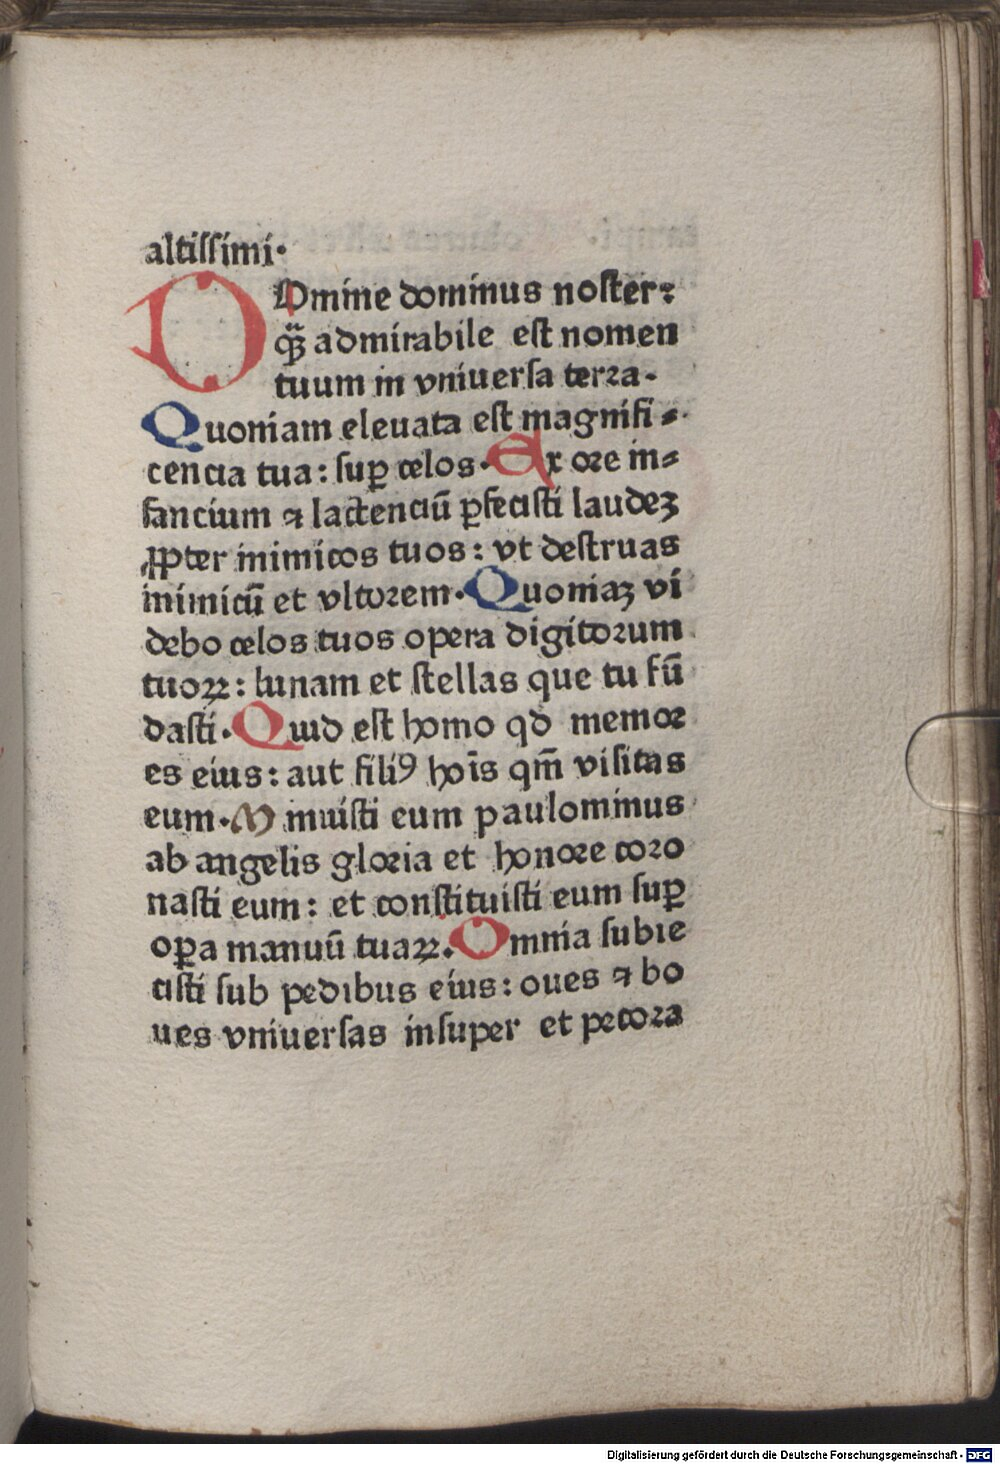 altissimi·
DOmine dominus noster:
qꝫ̈ admirabile est nomen
tuum in vniuersa terra·
Quoniam eleuata est magnifi⸗
cencia tua: suꝑ celos·Ex ore in⸗
fancium ⁊ lactenciū ꝑfecisti laudeꝫ
ꝓpter inimicos tuos: vt destruas
inimicū et vltorem·Quoniaꝫ vi
debo celos tuos opera digitorum
tuoꝝ: lunam et stellas que tu fū
dasti·Quid est homo qd memor
es eius: aut filiꝰ hoīs qm̄ visitas
eum·Minuisti eum paulominus
ab angelis gloria et honore coro
nasti eum: et constituisti eum suꝑ
oꝑa manuū tuaꝝ·Omnia subie
cisti sub pedibus eius: oues ⁊ bo
ues vniuersas insuper et pecora
Digitalisierung gefördert durch die Deutsche Forschungsgemeinschaft - DFG